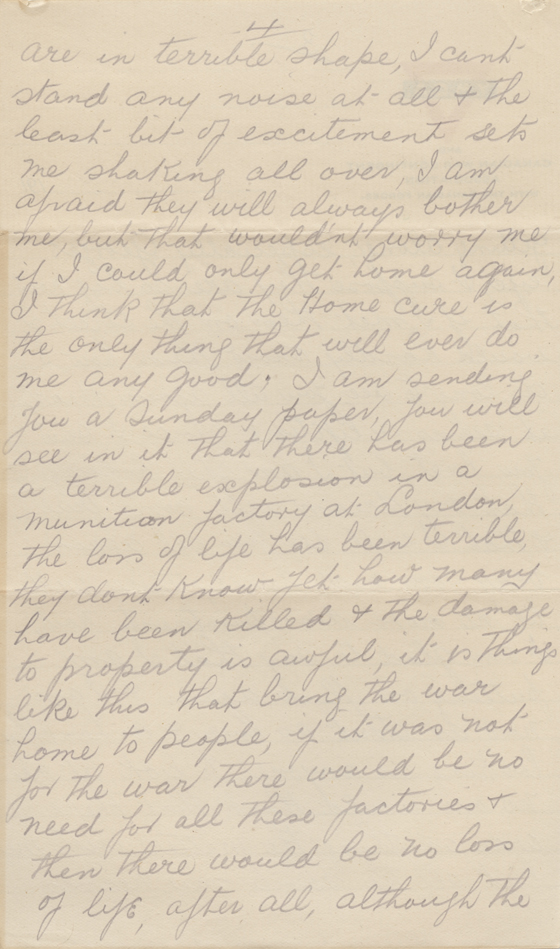 4
are in terrible shape, I cant
stand any noise at all & the
least bit of excitement sets
me shaking all over, I am
afraid they will always bother
me, but that wouldn't worry me
if I could only get home again,
I think that the Home cure is
the only thing that will ever do
me any good; I am sending
you a Sunday paper, you will
see in it that there has been
a terrible explosion in a
munition factory at London,
the loss of life has been terrible,
they dont know yet how many
have been killed & the damage
to property is awful, it is things
like this that bring the war
home to people, if it was not
for the war there would be no
need for all these factories &
then there would be no loss
of life, after all, although the